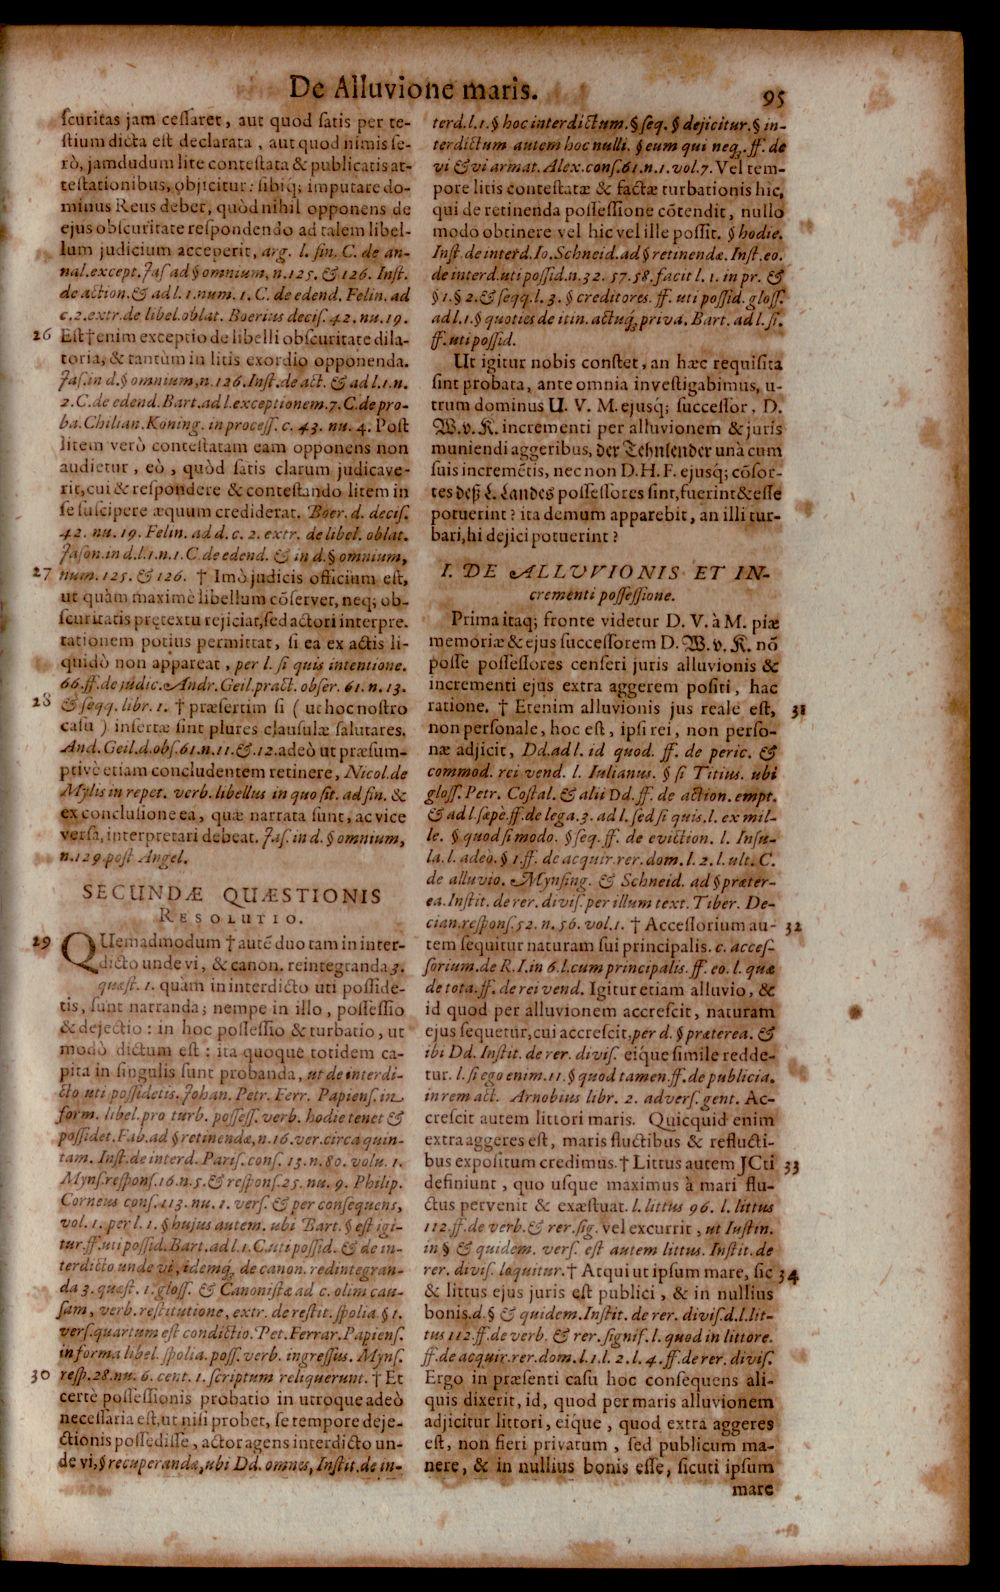 De Alluvione maris. 95
ſcuritas jam ceſſaret, aut quod ſatis per te-
ſtium dicta eſt declarata, aut quod nimis ſe-
rò, jamdudum lite conteſtata & publicatis at-
teſtationibus, objicitur: ſibiq; imputare do-
minus Reus debet, quòd nihil opponens de
ejus obſcuritate reſpondendo ad talem libel-
lum judicium acceperit, arg. l. fin. C. de an-
nal. except. Jaſ. ad § omnium, n. 125. & 126. Inſt.
de action. & ad l. 1. num. 1. C. de edend. Felin. ad
c. 2. extr. de libel. oblat. Boerius deciſ. 42. nu. 19.
26 Eſt † enim exceptio de libelli obſcuritate dila-
toria, & tantùm in litis exordio opponenda.
Jaſ. in d. § omnium, n. 126. Inſt. de act. & ad l. 1. n.
2. C. de edend. Bart. ad l. exceptionem. 7. C. de pro-
ba. Chilian. Koning. in proceſſ. c. 43. nu. 4. Poſt
litem verò conteſtatam eam opponens non
audietur, eò, quòd ſatis clarum judicave-
rit, cui & reſpondere & conteſtando litem in
ſe ſuſcipere æquum crediderat. Boer. d. deciſ.
42. nu. 19. Felin. ad d. c. 2. extr. de libel. oblat.
Jaſon. in d. l. 1. n. 1. C. de edend. & in d. § omnium,
27 num. 125. & 126. † Imò judicis officium eſt,
ut quàm maximè libellum cōſervet, neq; ob-
ſcuritatis prętextu rejiciat, ſed actori interpre.
tationem potius permittat, ſi ea ex actis li-
quidò non appareat, per l. ſi quis intentione.
66. ff. de judic. Andr. Geil. pract. obſer. 61. n. 13.
28 & ſeqq. libr. 1. † præſertim ſi ( ut hoc noſtro
caſu ) inſertæ ſint plures clauſulæ ſalutares.
And. Geil. d. obſ. 61. n. 11. &. 12. adeò ut præſum-
ptivè etiam concludentem retinere, Nicol. de
Mylis in repet. verb. libellus in quo ſit. ad fin. &
ex concluſione ea, quæ narrata ſunt, ac vice
verſa, interpretari debeat. Jaſ. in d. § omnium,
n. 129. poſt Angel.
SECUNDÆ QUÆSTIONIS
RESOLUTIO.
29 QUemadmodum † autē duo tam in inter-
dicto unde vi, & canon. reintegranda 3.
quæſt. 1. quàm in interdicto uti poſſide-
tis, ſunt narranda; nempe in illo, poſſeſſio
& dejectio: in hoc poſſeſſio & turbatio, ut
modò dictum eſt: ita quoque totidem ca-
pita in ſingulis ſunt probanda, ut de interdi-
cto uti poſſidetis. Johan. Petr. Ferr. Papienſ. in
form. libel. pro turb. poſſeſſ. verb. hodie tenet &
poſſidet. Fab. ad § retinendæ, n. 16. ver. circa quin-
tam. Inſt. de interd. Pariſ. conſ. 13. n. 80. volu. 1.
Mynſ. reſponſ. 16. n. 5. & reſponſ. 25. nu. 9. Philip.
Corneus conſ. 113. nu. 1. verſ. & per conſequens,
vol. 1. per l. 1. § hujus autem. ubi Bart. § eſt igi-
tur. ff. uti poſſid. Bart. ad l. 1. C. uti poſſid. & de in-
terdicto unde vi, idemq; de canon. redintegran-
da 3. quæſt. 1. gloſſ. & Canoniſtæ ad c. olim cau-
ſam, verb. reſtitutione, extr. de reſtit. ſpolia. § 1.
verſ. quartum eſt condictio. Pet. Ferrar. Papienſ.
in forma libel. ſpolia. poſſ. verb. ingreſſus. Mynſ.
30 reſp. 28. nu. 6. cent. 1. ſcriptum reliquerunt. † Et
certè poſſeſſionis probatio in utroque adeò
neceſſaria eſt, ut niſi probet, ſe tempore deje-
ctionis poſſediſſe, actor agens interdicto un-
de vi, § recuperandæ, ubi Dd. omnes, Inſtit. de in-
terd. l. 1. § hoc interdictum. § ſeq. § dejicitur. § in-
terdictum autem hoc nulli. § eum qui neq;. ff. de
vi & vi armat. Alex. conſ. 61. n. 1. vol. 7. Vel tem-
pore litis conteſtatæ & factæ turbationis hic,
qui de retinenda poſſeſſione cōtendit, nullo
modo obtinere vel hic vel ille poſſit. § hodie.
Inſt. de interd. Jo. Schneid. ad § retinendæ. Inſt. eo.
de interd. uti poſſid. n. 32. 57. 58. facit l. 1. in pr. &
§ 1. § 2. & ſeqq. l. 3. § creditores. ff. uti poſſid. gloſſ.
ad l. 1. § quoties de itin. actuq; priva. Bart. ad l. ſi.
ff. uti poſſid.
Ut igitur nobis conſtet, an hæc requiſita
ſint probata, ante omnia inveſtigabimus, u-
trum dominus U. V. M. ejusq; ſucceſſor, D.
W. v. K. incrementi per alluvionem & juris
muniendi aggeribus, der Tehnſender unà cum
ſuis incremētis, nec non D. H. F. ejusq; cōſor-
tes deß L. Landes poſſeſſores ſint, fuerint & eſſe
potuerint? ita demum apparebit, an illi tur-
bari, hi dejici potuerint?
I. DE ALLUVIONIS ET IN-
crementi poſſeſſione.
Prima itaq; fronte videtur D. V. à M. piæ
memoriæ & ejus ſucceſſorem D. W. v. K. nō
poſſe poſſeſſores cenſeri juris alluvionis &
incrementi ejus extra aggerem poſiti, hac
ratione. † Etenim alluvionis jus reale eſt, 31
non perſonale, hoc eſt, ipſi rei, non perſo-
næ adjicit, Dd. ad l. id quod. ff. de peric. &
commod. rei vend. l. Iulianus. § ſi Titius. ubi
gloſſ. Petr. Coſtal. & alii Dd. ff. de action. empt.
& ad l. ſæpè. ff. de lega. 3. ad l. ſed ſi quis. l. ex mil-
le. § quod ſi modo. § ſeq. ff. de eviction. l. Inſu-
la. l. adeò. § 1. ff. de acquir. rer. dom. l. 2. l. ult. C.
de alluvio. Mynſing. & Schneid. ad § præter-
ea. Inſtit. de rer. diviſ. per illum text. Tiber. De-
cian. reſponſ. 52. n. 56. vol. 1. † Acceſſorium au- 32
tem ſequitur naturam ſui principalis. c. acceſ-
ſorium. de R. I. in 6. l. cum principalis. ff. eo. l. quæ
de tota. ff. de rei vend. Igitur etiam alluvio, &
id quod per alluvionem accreſcit, naturam
ejus ſequetur, cui accreſcit, per d. § præterea. &
ibi Dd. Inſtit. de rer. diviſ. eique ſimile redde-
tur. l. ſi ego enim. 11. § quod tamen. ff. de publicia.
in rem act. Arnobius libr. 2. adverſ. gent. Ac-
creſcit autem littori maris. Quicquid enim
extra aggeres eſt, maris fluctibus & refluct­i-
bus expoſitum credimus. † Littus autem JCti 33
definiunt, quo uſque maximus à mari flu-
ctus pervenit & exæſtuat. l. littus 96. l. littus
112. ff. de verb. & rer. ſig. vel excurrit, ut Iuſtin.
in § & quidem. verſ. eſt autem littus. Inſtit. de
rer. diviſ. loquitur. † Atqui ut ipſum mare, ſic 34
& littus ejus juris eſt publici, & in nullius
bonis. d. § & quidem. Inſtit. de rer. diviſ. d. l. lit-
tus 112. ff. de verb. & rer. ſignif. l. quod in littore.
ff. de acquir. rer. dom. l. 1. l. 2. l. 4. ff. de rer. diviſ.
Ergo in præſenti caſu hoc conſequens ali-
quis dixerit, id, quod per maris alluvionem
adjicitur littori, eique, quod extra aggeres
eſt, non fieri privatum, ſed publicum ma-
nere, & in nullius bonis eſſe, ſicuti ipſum
mare